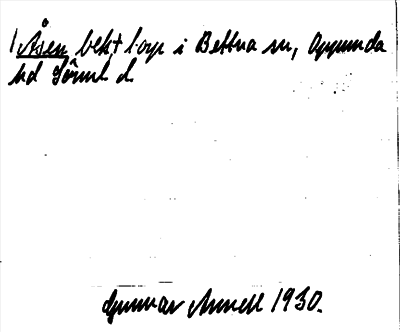 Åsen bekt torp i Bettna sn, Oppunda
hd Sörml. l.
Gunnar Annell 1930.